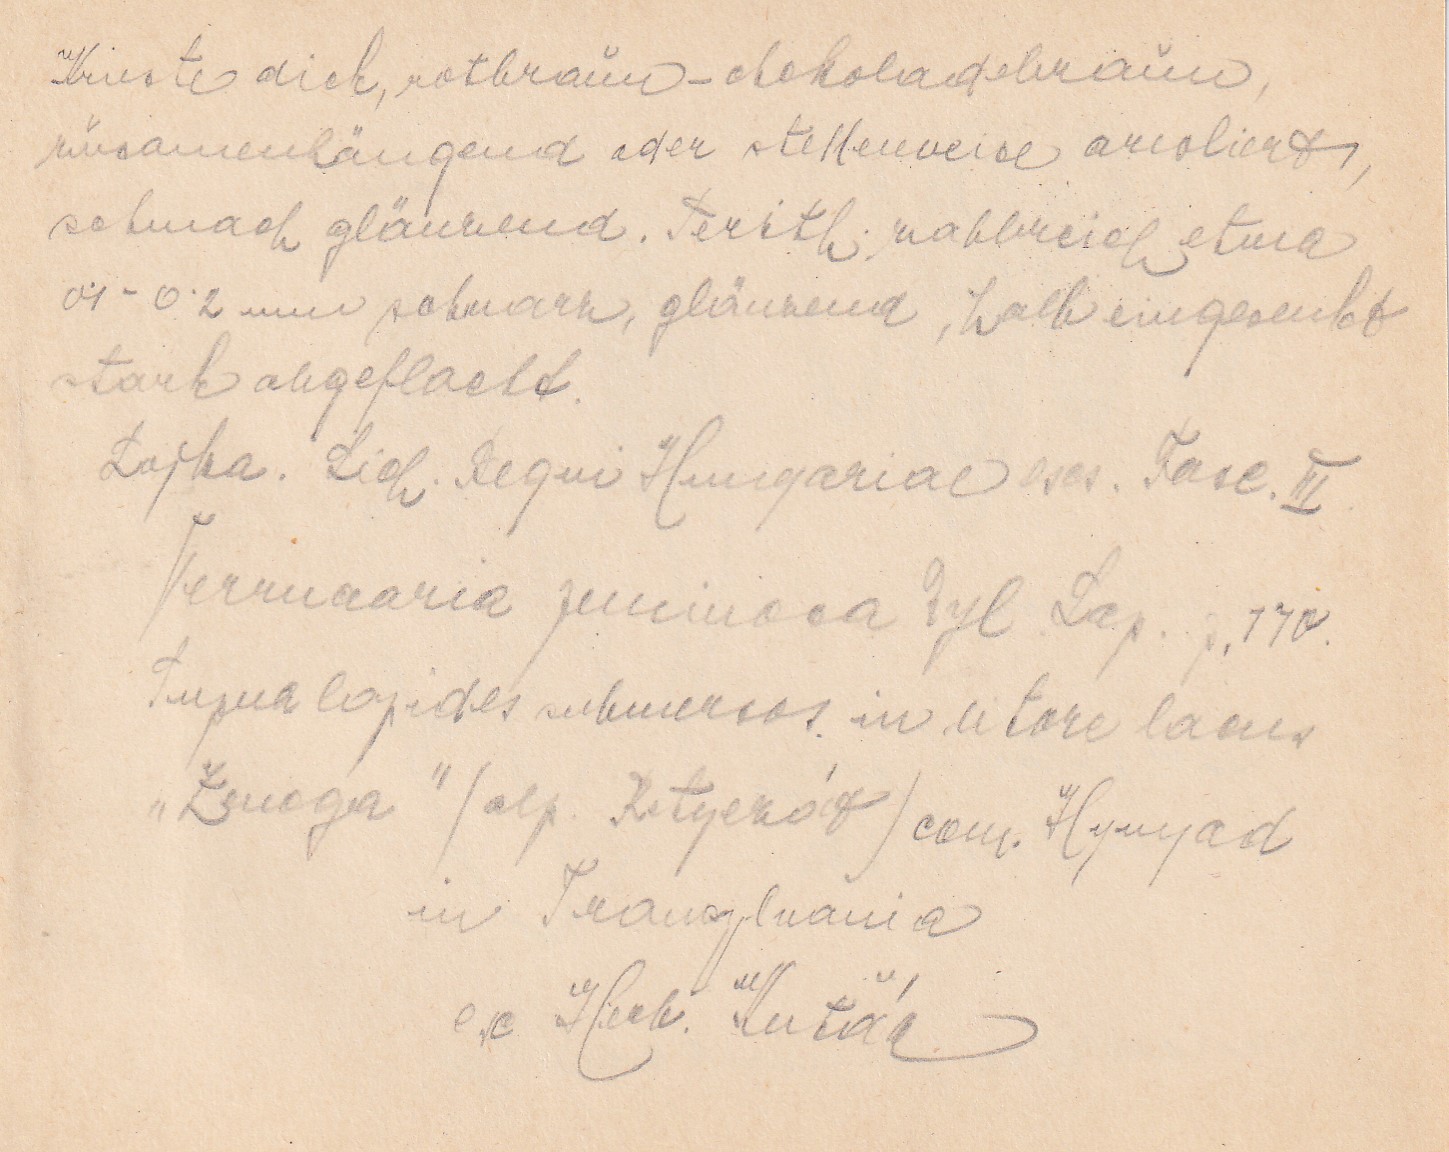 Kruste dick, rotbraŭn - chokoladebraŭn,
zusamenhängend oder stellenweise areoliert,
schwach glänzend. Perith. zahlreich etwa
0·1 - 0·2 mm schwarz, glänzend, halb eingesenkt
stark abgeflacht.
Lojka. Lich. Regni Hungariae exs. Fasc. III
Verrucaria Nyl Lap. p. 170.
Supra lapides submersos in litore lacus
„Zenoga" (alp. Retyezát) com. Hunyad
in Transylvania
ex Herb. Kuťák